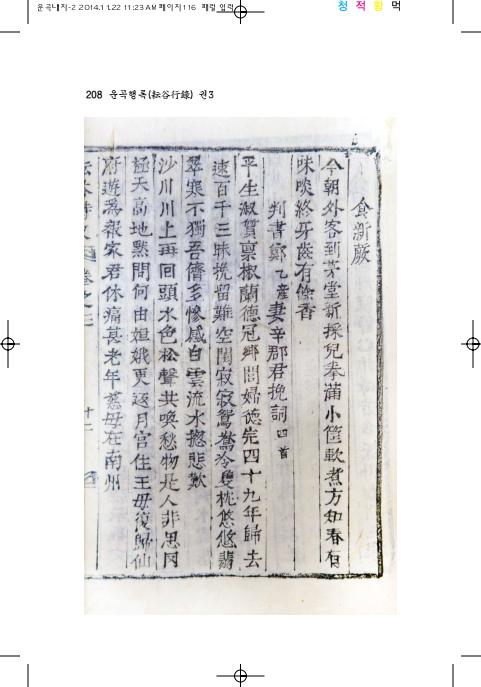 운곡내지-2 2014.11.22 11:23 AM 페이지116 패럴 입력
청 적 황 먹
208 운곡행록(耘谷行錄) 권3
食新蕨
今朝外客到茅堂新採兒拳滿小筐軟煮方知春有
味啖終牙齒有餘香
判書鄭乙産妻辛郡君挽詞四首
平生淑質稟椒蘭德冠鄕閭婦德完四十九年歸去
速百千三昧挽留難空閨寂寂鴛鴦冷雙枕悠悠翡
翠寒不獨吾儕多慘慼白雲流水摠悲歎
沙川川上再回頭水色松聲共喚愁物是人非思罔
極天高地黙問何由姮娥更返月宮住王母復歸仙
府遊爲報家君休痛甚老年慈母在南州
卷之三
十二